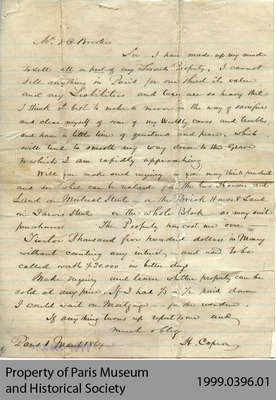 Mr
Sir I have made up my mind
to sell all or part of my Property. I cannot
sell anything in Paris for one third its value
and my Liabilities and are so heavy that
I think it best to make a move in the way of sacrifice
and clear myself of some of my Worldly cares and troubles,
and have a little time of quietude and peace, which
will tend to smooth my way down to the Grave
to which I am rapidly approaching
Will you make such enquiry as you may think prudent
and see what can be realized for the two Houses and
Land on Street, or the Brick House & Land
on Street or the whole Block as may suit
purchasers The Property has cost me over
Twelve Thousand five hundred dollars in Money
without counting any interest, and used to be
called worth $20000 in better times
Make enquiry and learn whether property can be
sold at any price. If I had ⅓ or ½ paid down
I could wait on Mortgage for the residue.
If any thing turns up report same and
much oblige
Paris 1 1864 H. Capron
Property of Paris Museum
and Historical Society
1999.0396.01